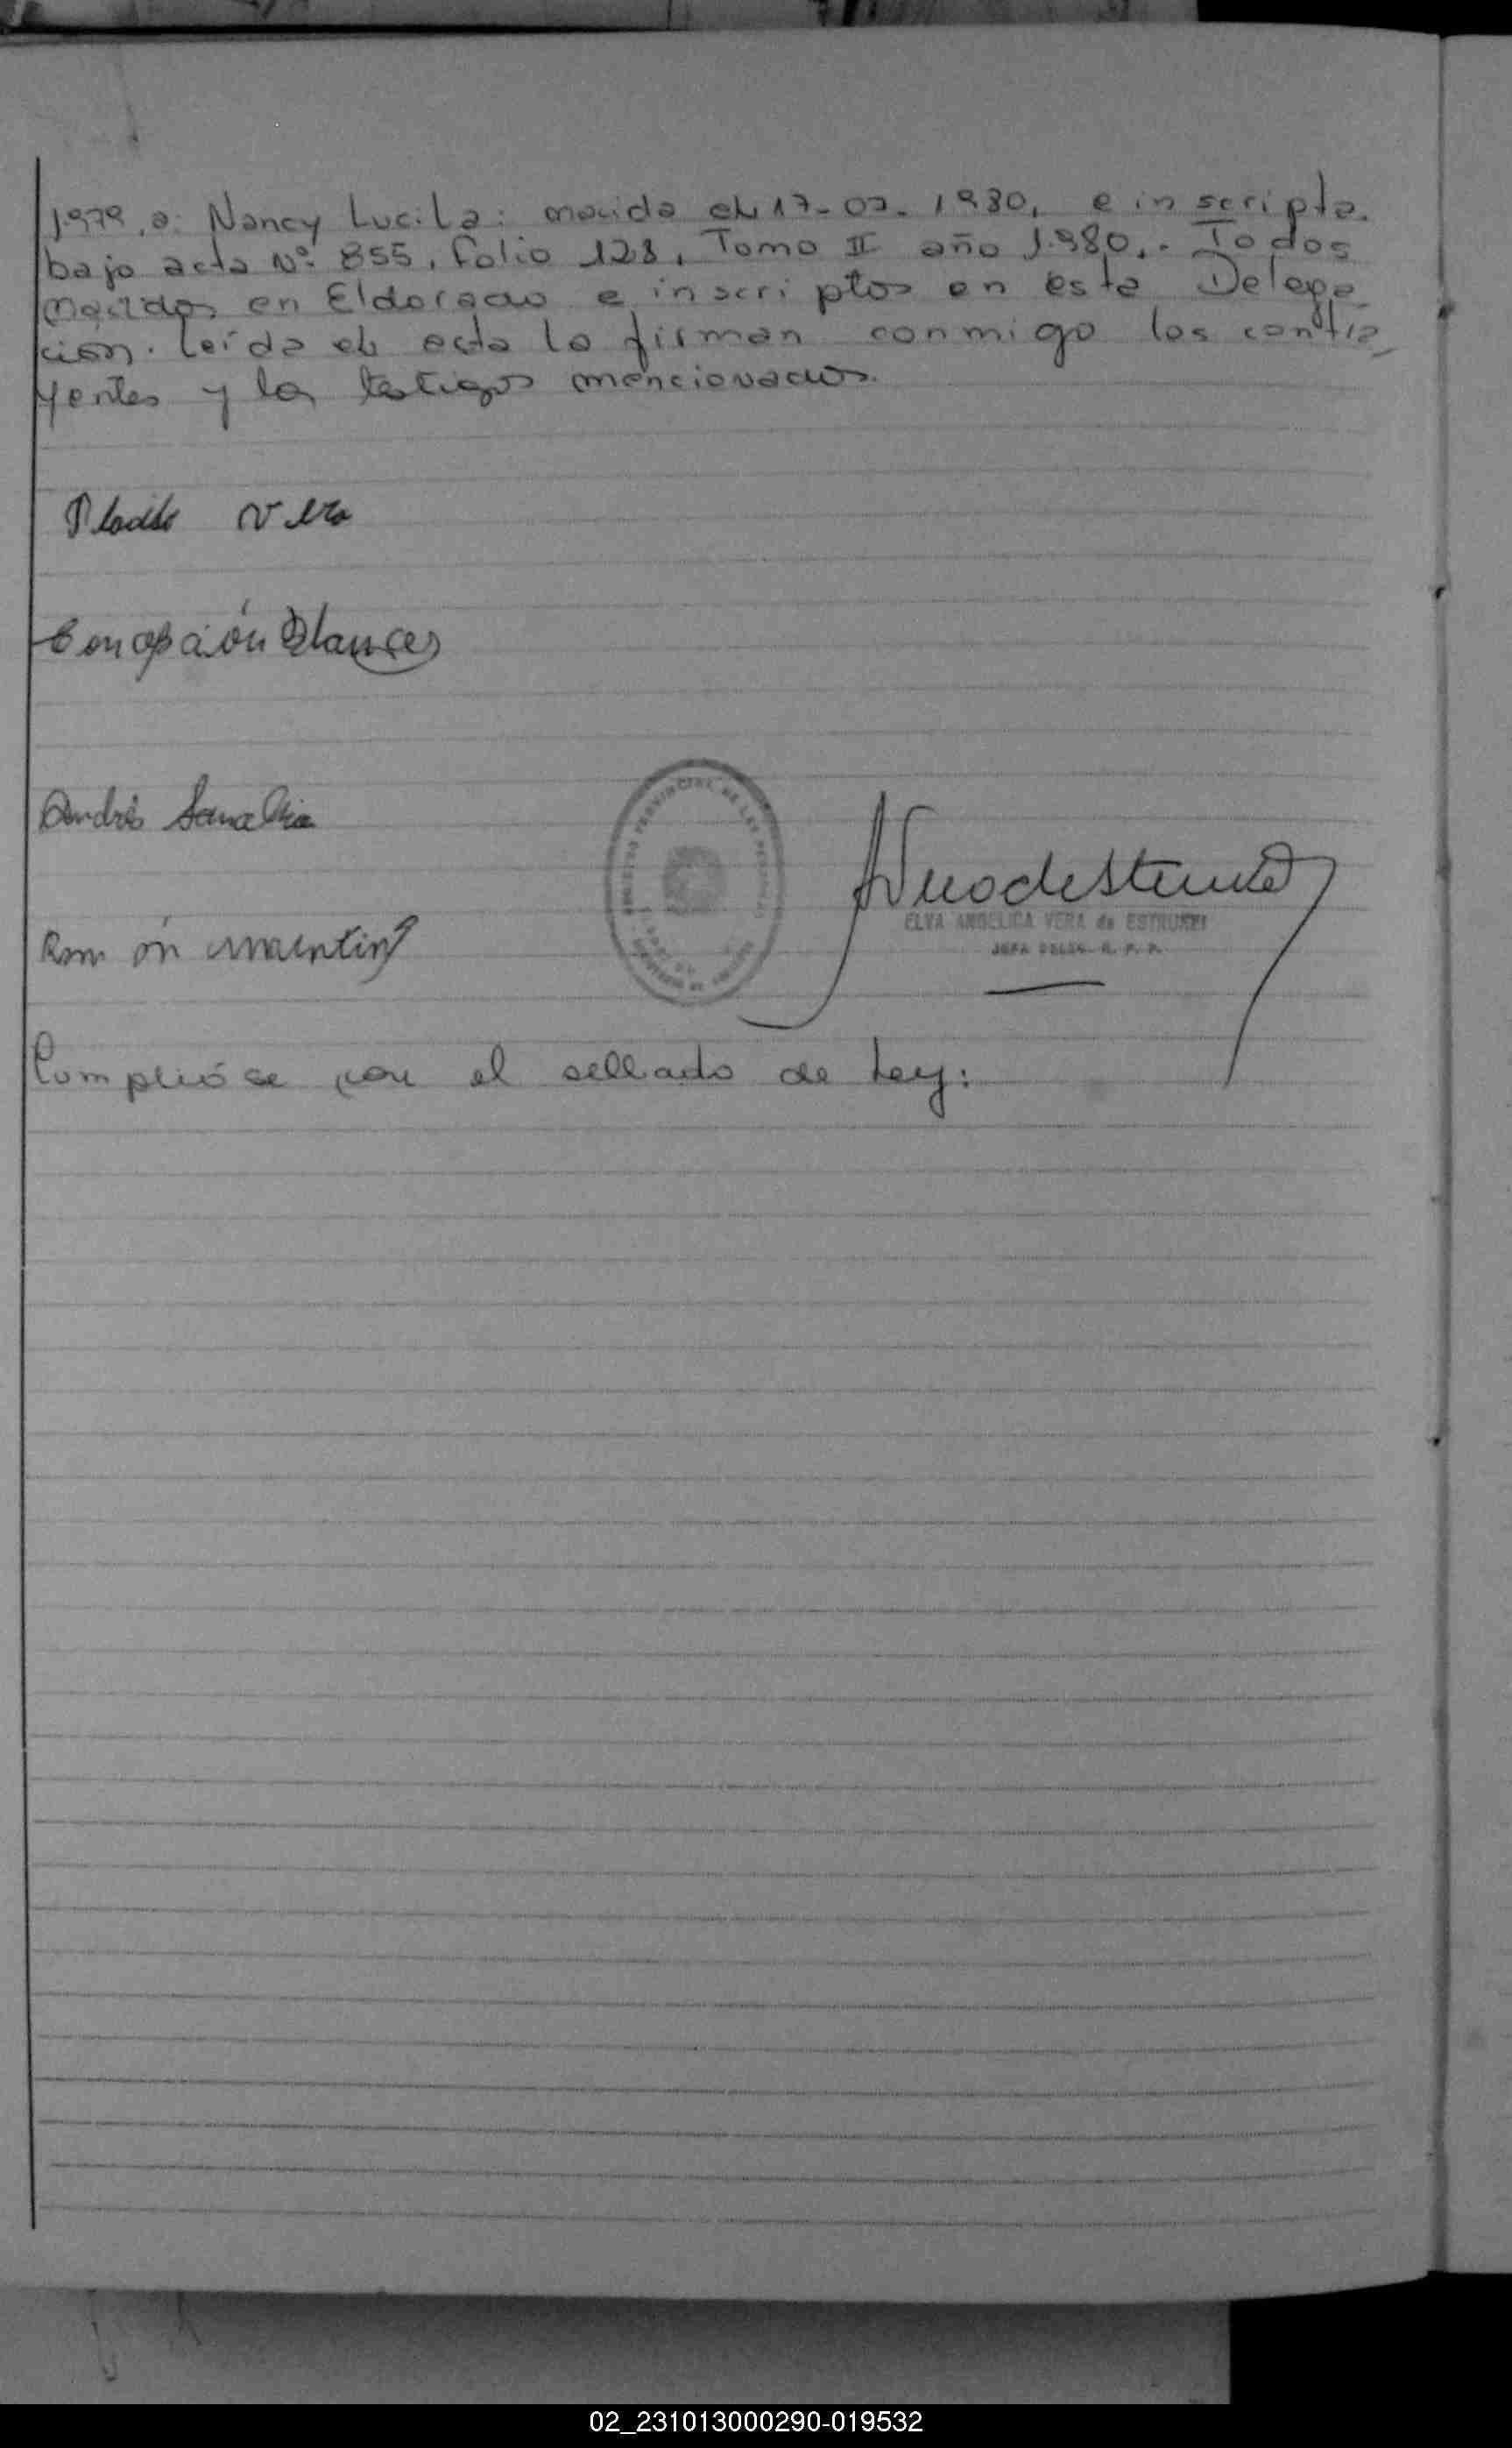 1.979, a: Nancy Lucila: nacida el 17-07-1980, e inscripta
bajo acta Nº 855, folio 128, Tomo II año 1.980,. Todos
nacidos en Eldorado e inscriptos en esta Delega
ción. Leída el acta la firman conmigo los contra
yentes y los testigos mencionados.
Vera
Concepción
Andrés
Ramón Martinez
ELVA ANGELICA VERA de
JEFA DELEG. R. P. P.
Cumplióse con el sellado de Ley:
02_231013000290-019532